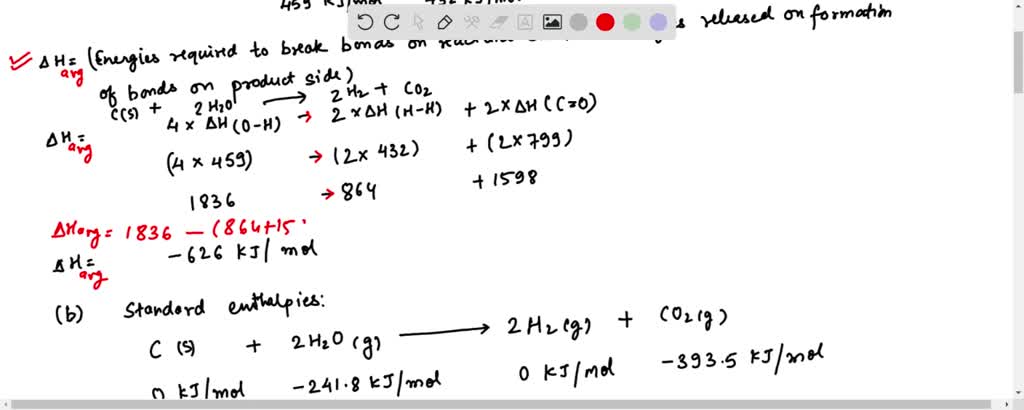 459 KJ/mol
ΔH= (Energies required to break bonds on released on formation
arg
of bonds on product side)
C(s) + 2H2O → 2H2 + CO2
ΔH= 4 × ΔH (O-H) → 2 × ΔH (H-H) + 2 × ΔH (C=O)
arg
(4 × 459) → (2 × 432) + (2 × 799)
1836 → 864 + 1598
ΔHarg = 1836 — (864+15
ΔH= -626 KJ/mol
arg
(b) Standard enthalpies:
C (s) + 2H2O (g) → 2H2 (g) + CO2 (g)
0 KJ/mol -241.8 KJ/mol 0 KJ/mol -393.5 KJ/mol